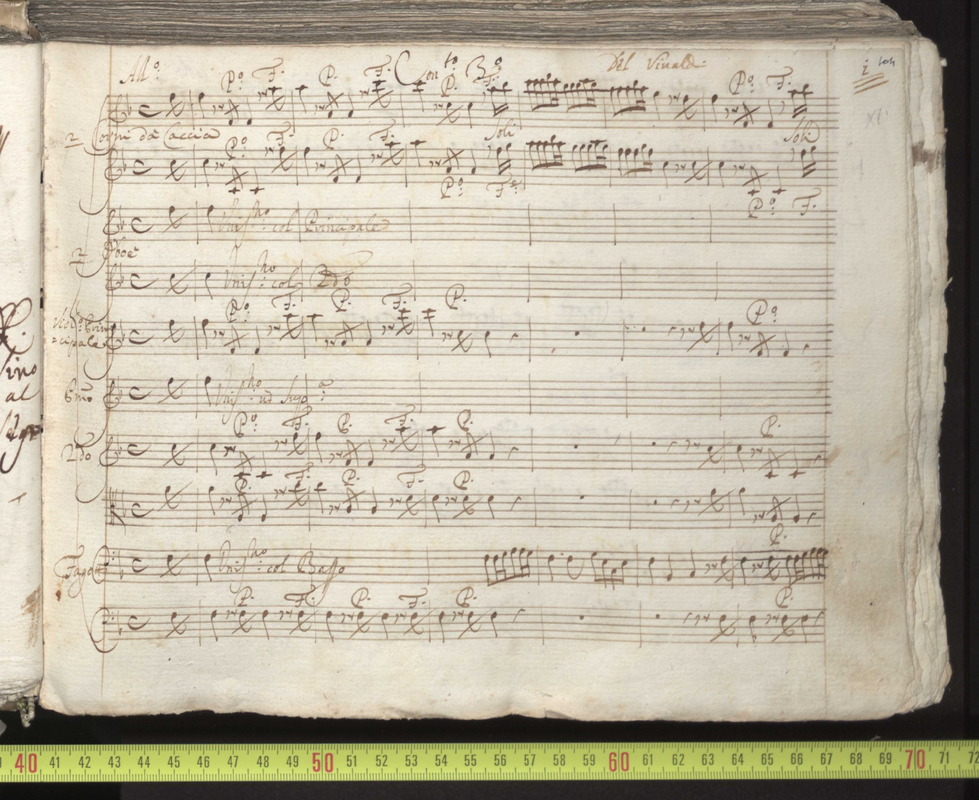 All.º Con.to 3.º Del Vivaldi 1 101
P.º F. P. F. P.º F. P.º F.
2 Corni da Caccia
Soli Soli
P.º F. P. F.
P.º F. P.º F.
Unis.no col Principale
2 Oboè
Unis.no col 2do
Viol.º Prin
cipale
P.º F. P. F. P. P.º
Primo Unis.no ad Sup.a
2do
P.º F. P. F. P. P.
P. F. P. F. P.
Fagotto Unis.no col Basso P.
P. F. P. F. P. P.
40 41 42 43 44 45 46 47 48 49 50 51 52 53 54 55 56 57 58 59 60 61 62 63 64 65 66 67 68 69 70 71 72